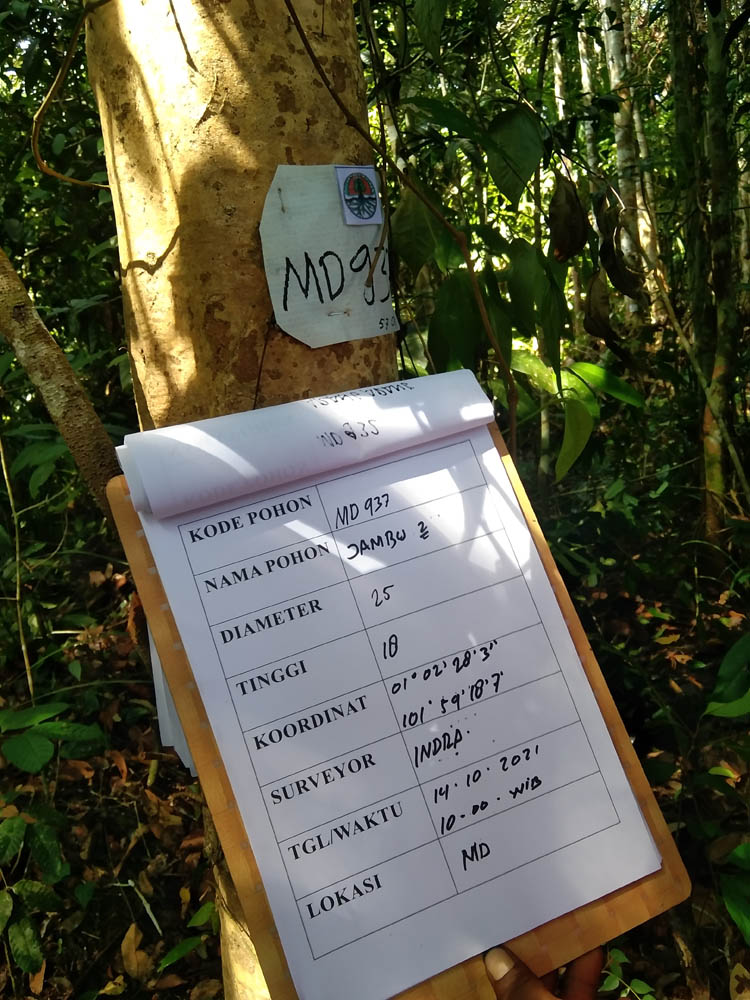 MD 93
KODE POHON MD 937
NAMA POHON JAMBU 2
DIAMETER 25
TINGGI 18
KOORDINAT 01° 02' 28'3"
101° 59' 18'7'
SURVEYOR INDRA
TGL/WAKTU 14.10.2021
10.00. WIB
LOKASI MD